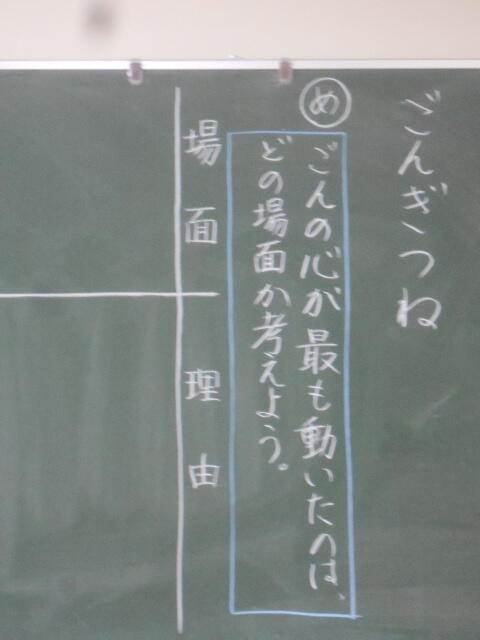 ごんぎつね
め
ごんの心が最も動いたのは、
どの場面か考えよう。
場面
理由